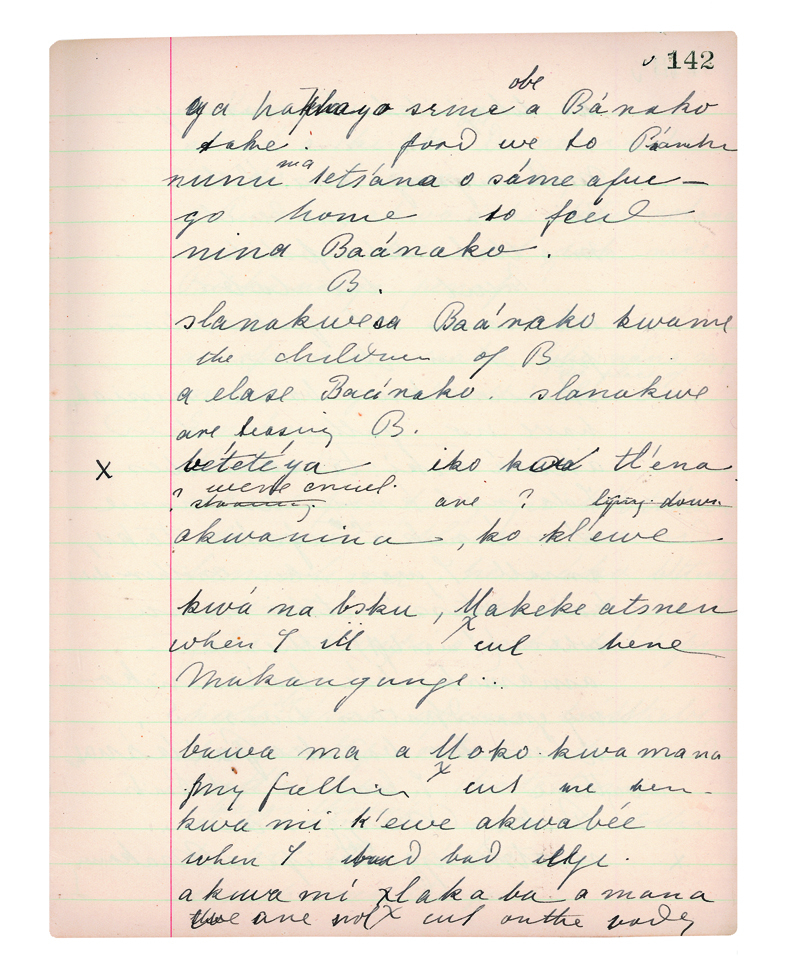 142
obe
ya seme a Bánako
take. food we to
ma
nunu letsána o sáme afue —
go home to feed
nina Baánako.
B.
slanakwesa Baánako kwame
the children of B
a elase Baánako. slanakwe
are teasing B.
X bétetéya iko tl'éna
? were cruel. are ? lying down
akwanina, ko kl'ewe
kwá na bsku, Makeke atsnen
when I ill x cut here
Makangunge..
bawa ma a Moko kwa mana
my father x cut me
kwa mi k'ewe akwabée
when I bad
akwa mi xlaka ba a mana
are not x cut on the body